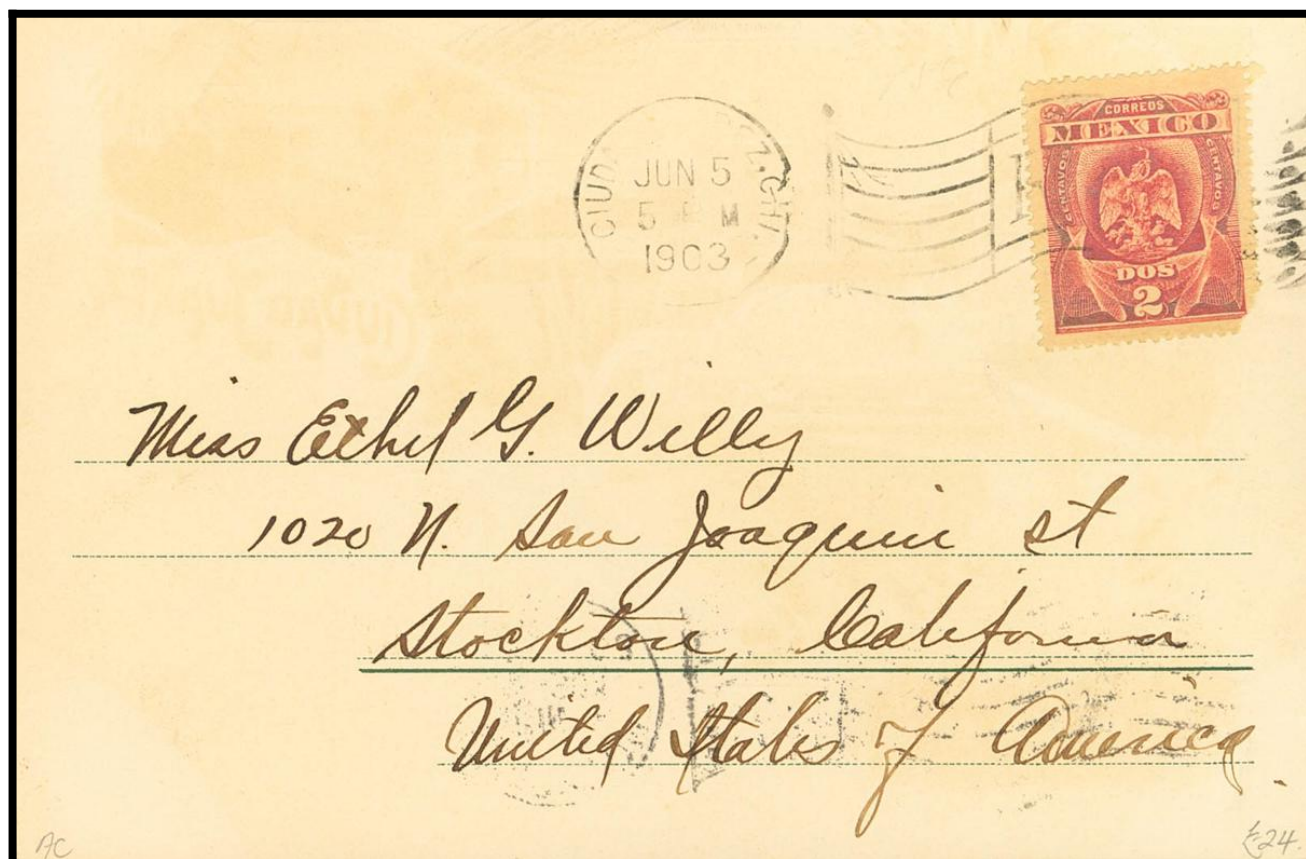 JUN 5
5 M
1903
CORREOS
MEXICO
CENTAVOS CENTAVOS
DOS
2
Miss Ethel G. Willy
1020 N. San Joaquin st
Stockton, California
United States of America
AC
£24.